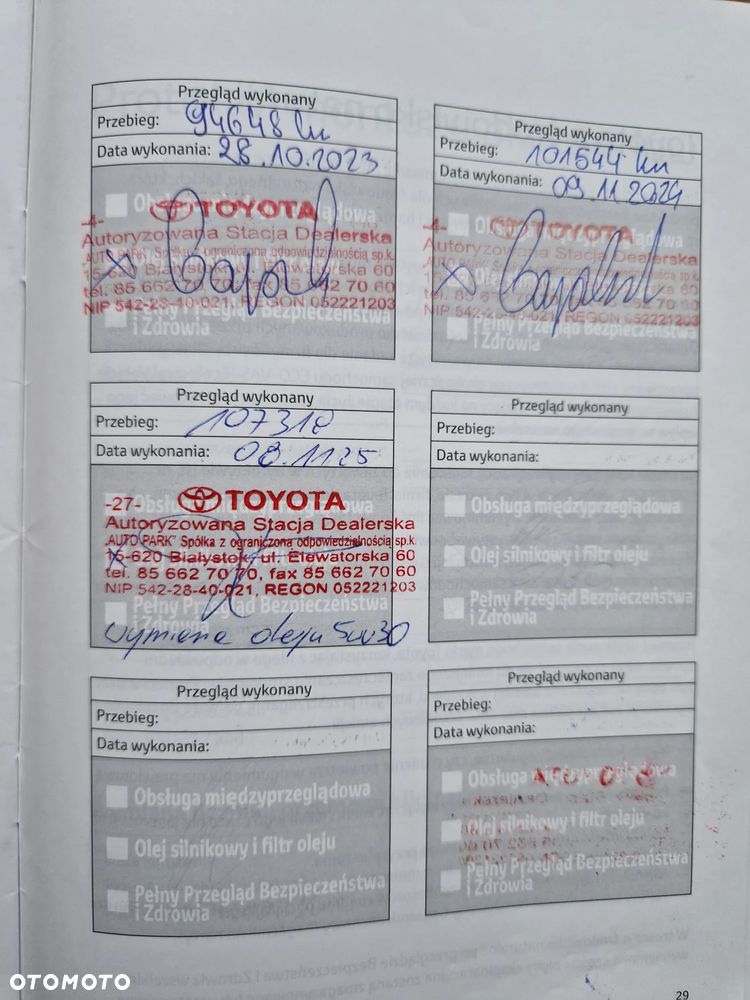 Przegląd wykonany
Przebieg: 94648 km
Data wykonania: 28.10.2023
TOYOTA
-4-
Autoryzowana Stacja Dealerska
„AUTO PARK" Spółka z ograniczoną odpowiedzialnością sp.k.
15-620 Białystok, ul. Elewatorska 60
tel. 85 662 70 70, fax 85 662 70 60
NIP 542-28-40-021, REGON 052221203
Pełny Przegląd Bezpieczeństwa
i Zdrowia
Przegląd wykonany
Przebieg: 101544 km
Data wykonania: 09.11.2024
TOYOTA
-4-
Autoryzowana Stacja Dealerska
„AUTO PARK" Spółka z ograniczoną odpowiedzialnością sp.k.
NIP 542-28-40-021, REGON 052221203
Pełny Przegląd Bezpieczeństwa
i Zdrowia
Przegląd wykonany
Przebieg: 107318
Data wykonania: 08.11 25
-27- TOYOTA
Autoryzowana Stacja Dealerska
„AUTO PARK" Spółka z ograniczoną odpowiedzialnością sp.k.
15-620 Białystok, ul. Elewatorska 60
tel. 85 662 70 70, fax 85 662 70 60
NIP 542-28-40-021, REGON 052221203
Pełny Przegląd Bezpieczeństwa
i Zdrowia
wymiana oleju 5w30
Przegląd wykonany
Przebieg:
Data wykonania:
Obsługa międzyprzeglądowa
Olej silnikowy i filtr oleju
Pełny Przegląd Bezpieczeństwa
i Zdrowia
Przegląd wykonany
Przebieg:
Data wykonania:
Obsługa międzyprzeglądowa
Olej silnikowy i filtr oleju
Pełny Przegląd Bezpieczeństwa
i Zdrowia
Przegląd wykonany
Przebieg:
Data wykonania:
Obsługa międzyprzeglądowa
Olej silnikowy i filtr oleju
Pełny Przegląd Bezpieczeństwa
i Zdrowia
29
OTOMOTO